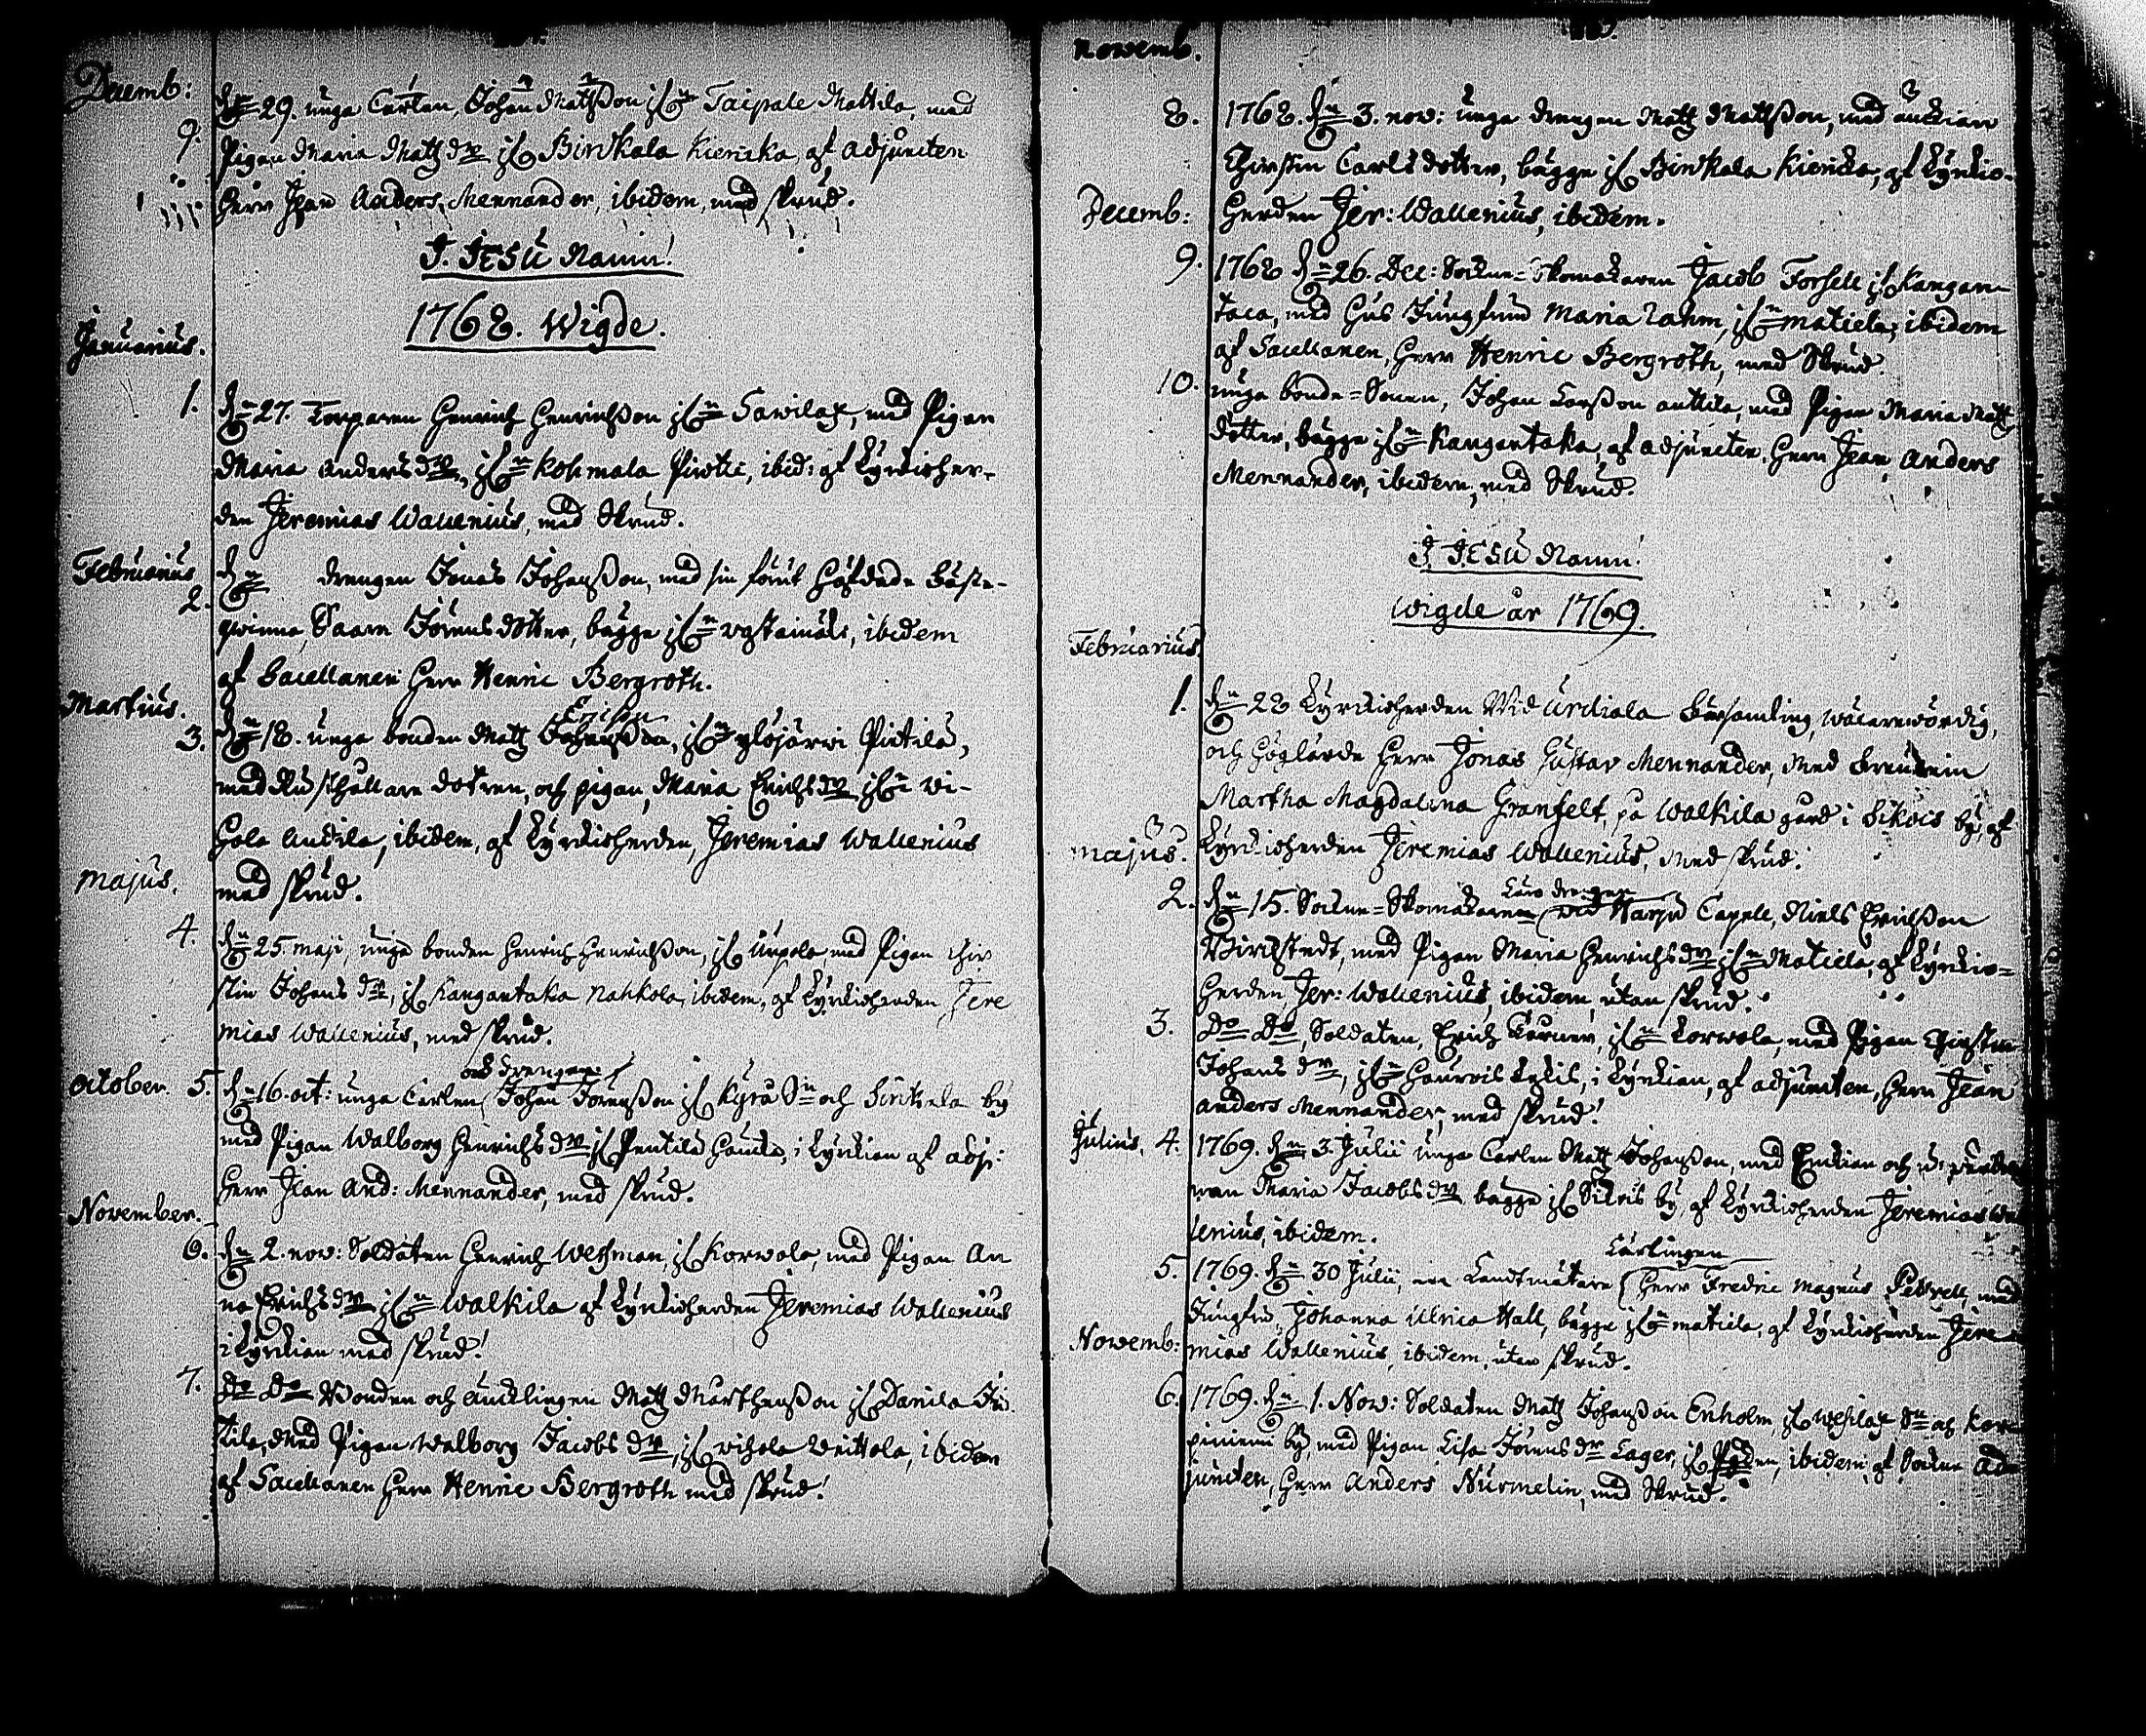 Decemb:
9. d:n 29. unga Carlen, Johan Mattsson ifr:n Taipale Mattila, med
Pigan Maria Matz d:r ifr. Birckala Kiericka, af adjuncten
Herr Jean Anders Mennander, ibidem, med skrud.
I. JESU Namn!
1768. Wigde.
Januarius.
1. d:n 27. Torparen Henrich Henrichsson ifr:n Sawilax, med Pigan
Maria Anders d:r, ifr:n Kohmala, ibid: af Kyrckioher-
den Jeremias Wallenius, med Skrud.
Februarius
2. d:n drengen Jonas Johansson, med sin förut häfdade fäste-
qwinna, Saara Jörens dotter, bägge ifr:n, ibidem
af Sacellanen Herr Henric Bergroth.
Martius.
Ericsson
3. d:n 18. unga bonden Matz Johansson, ifr:n ylöjärwi Pirtilä,
med Rusthållare dotren, och pigan, Maria Erichs d:r ifr:n Vi-
hola, ibidem, af Kyrckioherden, Jeremias Wallenius
med skrud.
Majus.
4. d:n 25. maji, unga bonden Henrich Henrichsson, ifr. med Pigan Chir
stin Johans d:r, ifr. Kangantaka Nahkola, ibidem, af Kyrckioherden Jere
mias Wallenius, med skrud.
och drengen
October. 5. d:n 16. oct: unga Carlen Johan Jörensson ifr. Kyrö S:n och by
med Pigan Walborg Henrichs d:r ifr. Pentilä, i Kyrckian af adj:
Herr Jean And: Mennander, med skrud.
November.
6. d:n 2. nov: Soldaten Henrich Wessman, ifr. Korwola, med Pigan An
na Erichs d:r ifr:n Walkila af Kyrckioherden Jeremias Wallenius
i Kyrckian med skrud!
7. D:o D:o Bonden och Encklingen Matz Marthensson ifr. Danila
tila, Med Pigan Walborg Jacobs d:r, ifr. Vihola, ibidem
af Sacellanen Herr Henric Bergroth med skrud!
Novemb.
8. 1768. d:n 3. nov: unga drengen Matz Mattsson, med änckian
Chirstin Carls dotter, bägge ifr. Birckala Kiericka, af Kyrckio-
Decemb: herden Jer: Wallenius, ibidem.
9. 1768 d:n 26. Dec: Sockne-Skomakaren Jacob Forssell ifr. Kangan-
taca, med Hus Jungfrun Maria Zahm, ifr:n matiela, ibidem
af Sacellanen, Herr Henric Bergroth, med Skrud.
10. unga bonde-Sonen, Johan Larsson anttila, med Pigan Maria Matz
dotter, bägge ifr:n Kangantaka, af adjuncten, Herr Jean Anders
Mennander, ibidem, med Skrud.
I. JESU Namn!
Wigde år 1769.
Februarius.
1. d:n 28 Kyrckioherden Wid Urdiala Församling, wälärewördig,
och Höglärde Herr Jonas Gustav Mennander, Med Freuken
Martha Magdalena Granfelt, på Walkila gård i Sikois by, af
Majus. Kyrckioherden Jeremias Wallenius, Med skrud.
Läro drengen
2. d:n 15. Sockne-Skomakaren wid Harju Capell, Niels Erichsson
Birckstedt, med Pigan Maria Henrichs d:r ifr:n Matiela, af Kyrckio-
herden, Jer: Wallenius, ibidem, utan skrud.
3. D:o D:o, Soldaten, Erich, ifr:n Korwola, med Pigan Chirstin
Johans d:r, ifr:n, i Kyrckian, af adjuncten, Herr Jean
Anders Mennander, med skrud!
Julius. 4. 1769. d:n 3. Julii unga Carlen Matz Johansson, med Enckian och
Maria Jacobs d:r bägge ifr. Sikois by, af Kyrckioherden Jeremias Wal
lenius, ibidem.
Lärlingen
5. 1769. d:n 30 Julii, Landtmätare Herr Fredric Magnus Petrell, med
Jungfru, Johanna Ulrica Hall, bägge ifr:n matiela, af Kyrckioherden Jere
Novemb: mias Wallenius, ibidem, utan skrud.
6. 1769. d:n 1. Nov: Soldaten Matz Johansson Enholm, ifr. Wesilax S:n och Kor
piniemi by, med Pigan Lisa Jörens d:r Lager, ifr., ibidem, af Sockne Ad-
juncten, Herr Anders Nurmelin, med Skrud.